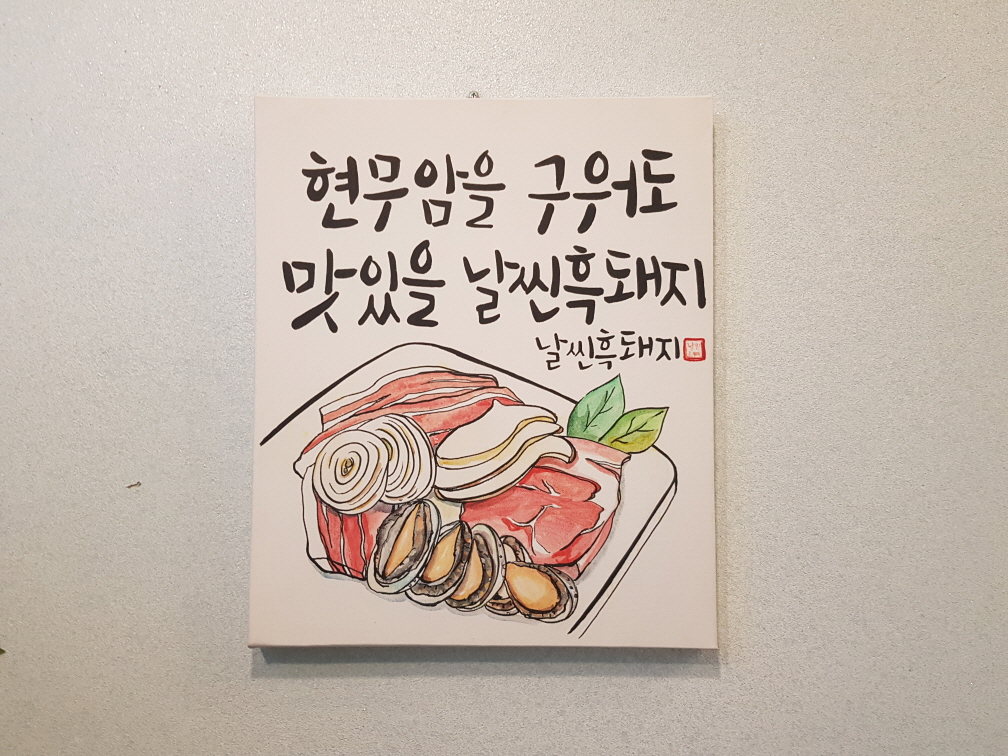 현무암을 구워도
맛있을 날씬흑돼지
날씬흑돼지